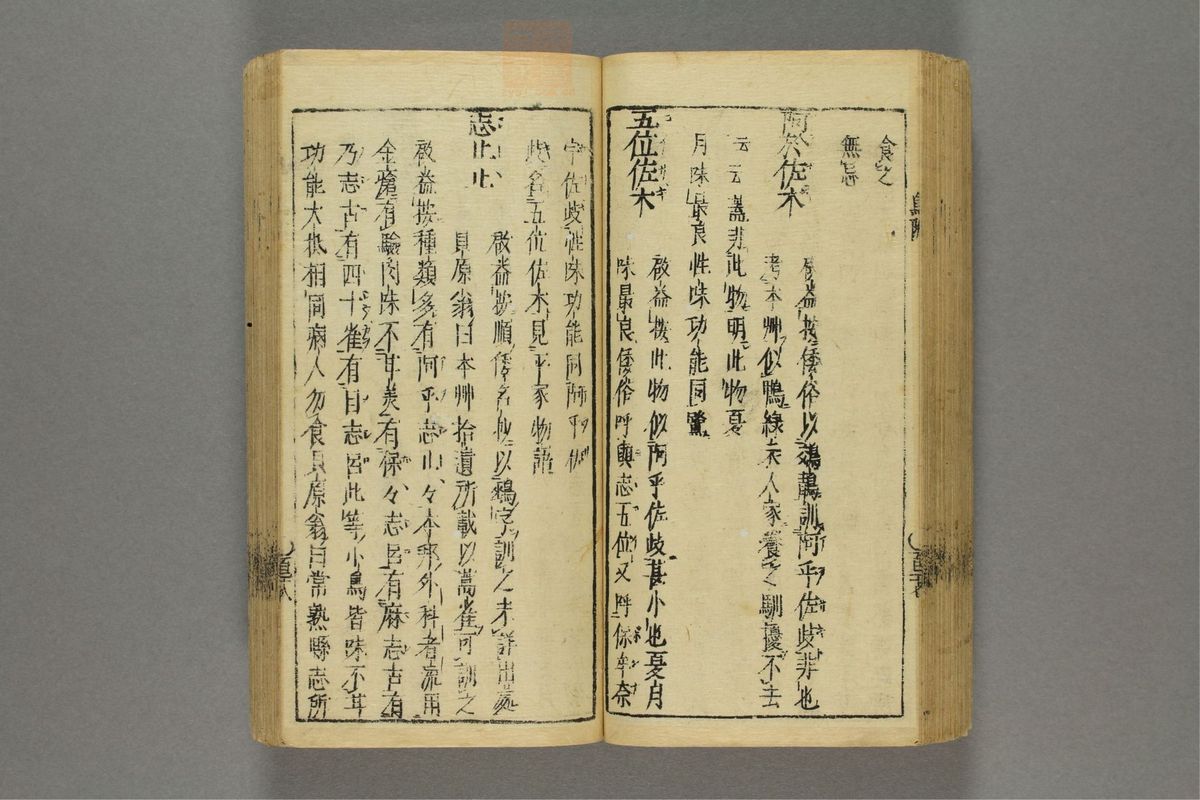 食之
無忌
阿於佐木
啟益按倭俗以鵁鶄訓阿乎佐岐非也
考本艸似鴨綠衣人家養之馴擾不去
云云蓋非此物明此物夏
月味最良性味功能同鷺
五位佐木
啟益按此物似阿乎佐岐甚小也夏月
味最良倭俗呼眞志五位又呼保牟奈
宇佐岐性味功能同阿乎佐
此名五位佐木見平家物語
志止止
啟益按順倭名抄以鵐字訓之未詳出處
貝原翁曰本艸拾遺所載以蒿雀可訓之
啟益按種類多有阿乎志止々本邦外科者流用
金瘡有驗肉味不甘美有保々志呂有麻志古有
乃志古有四十雀有目志呂此等小鳥皆味不甘
功能大抵相同病人勿食貝原翁曰常熟縣志所